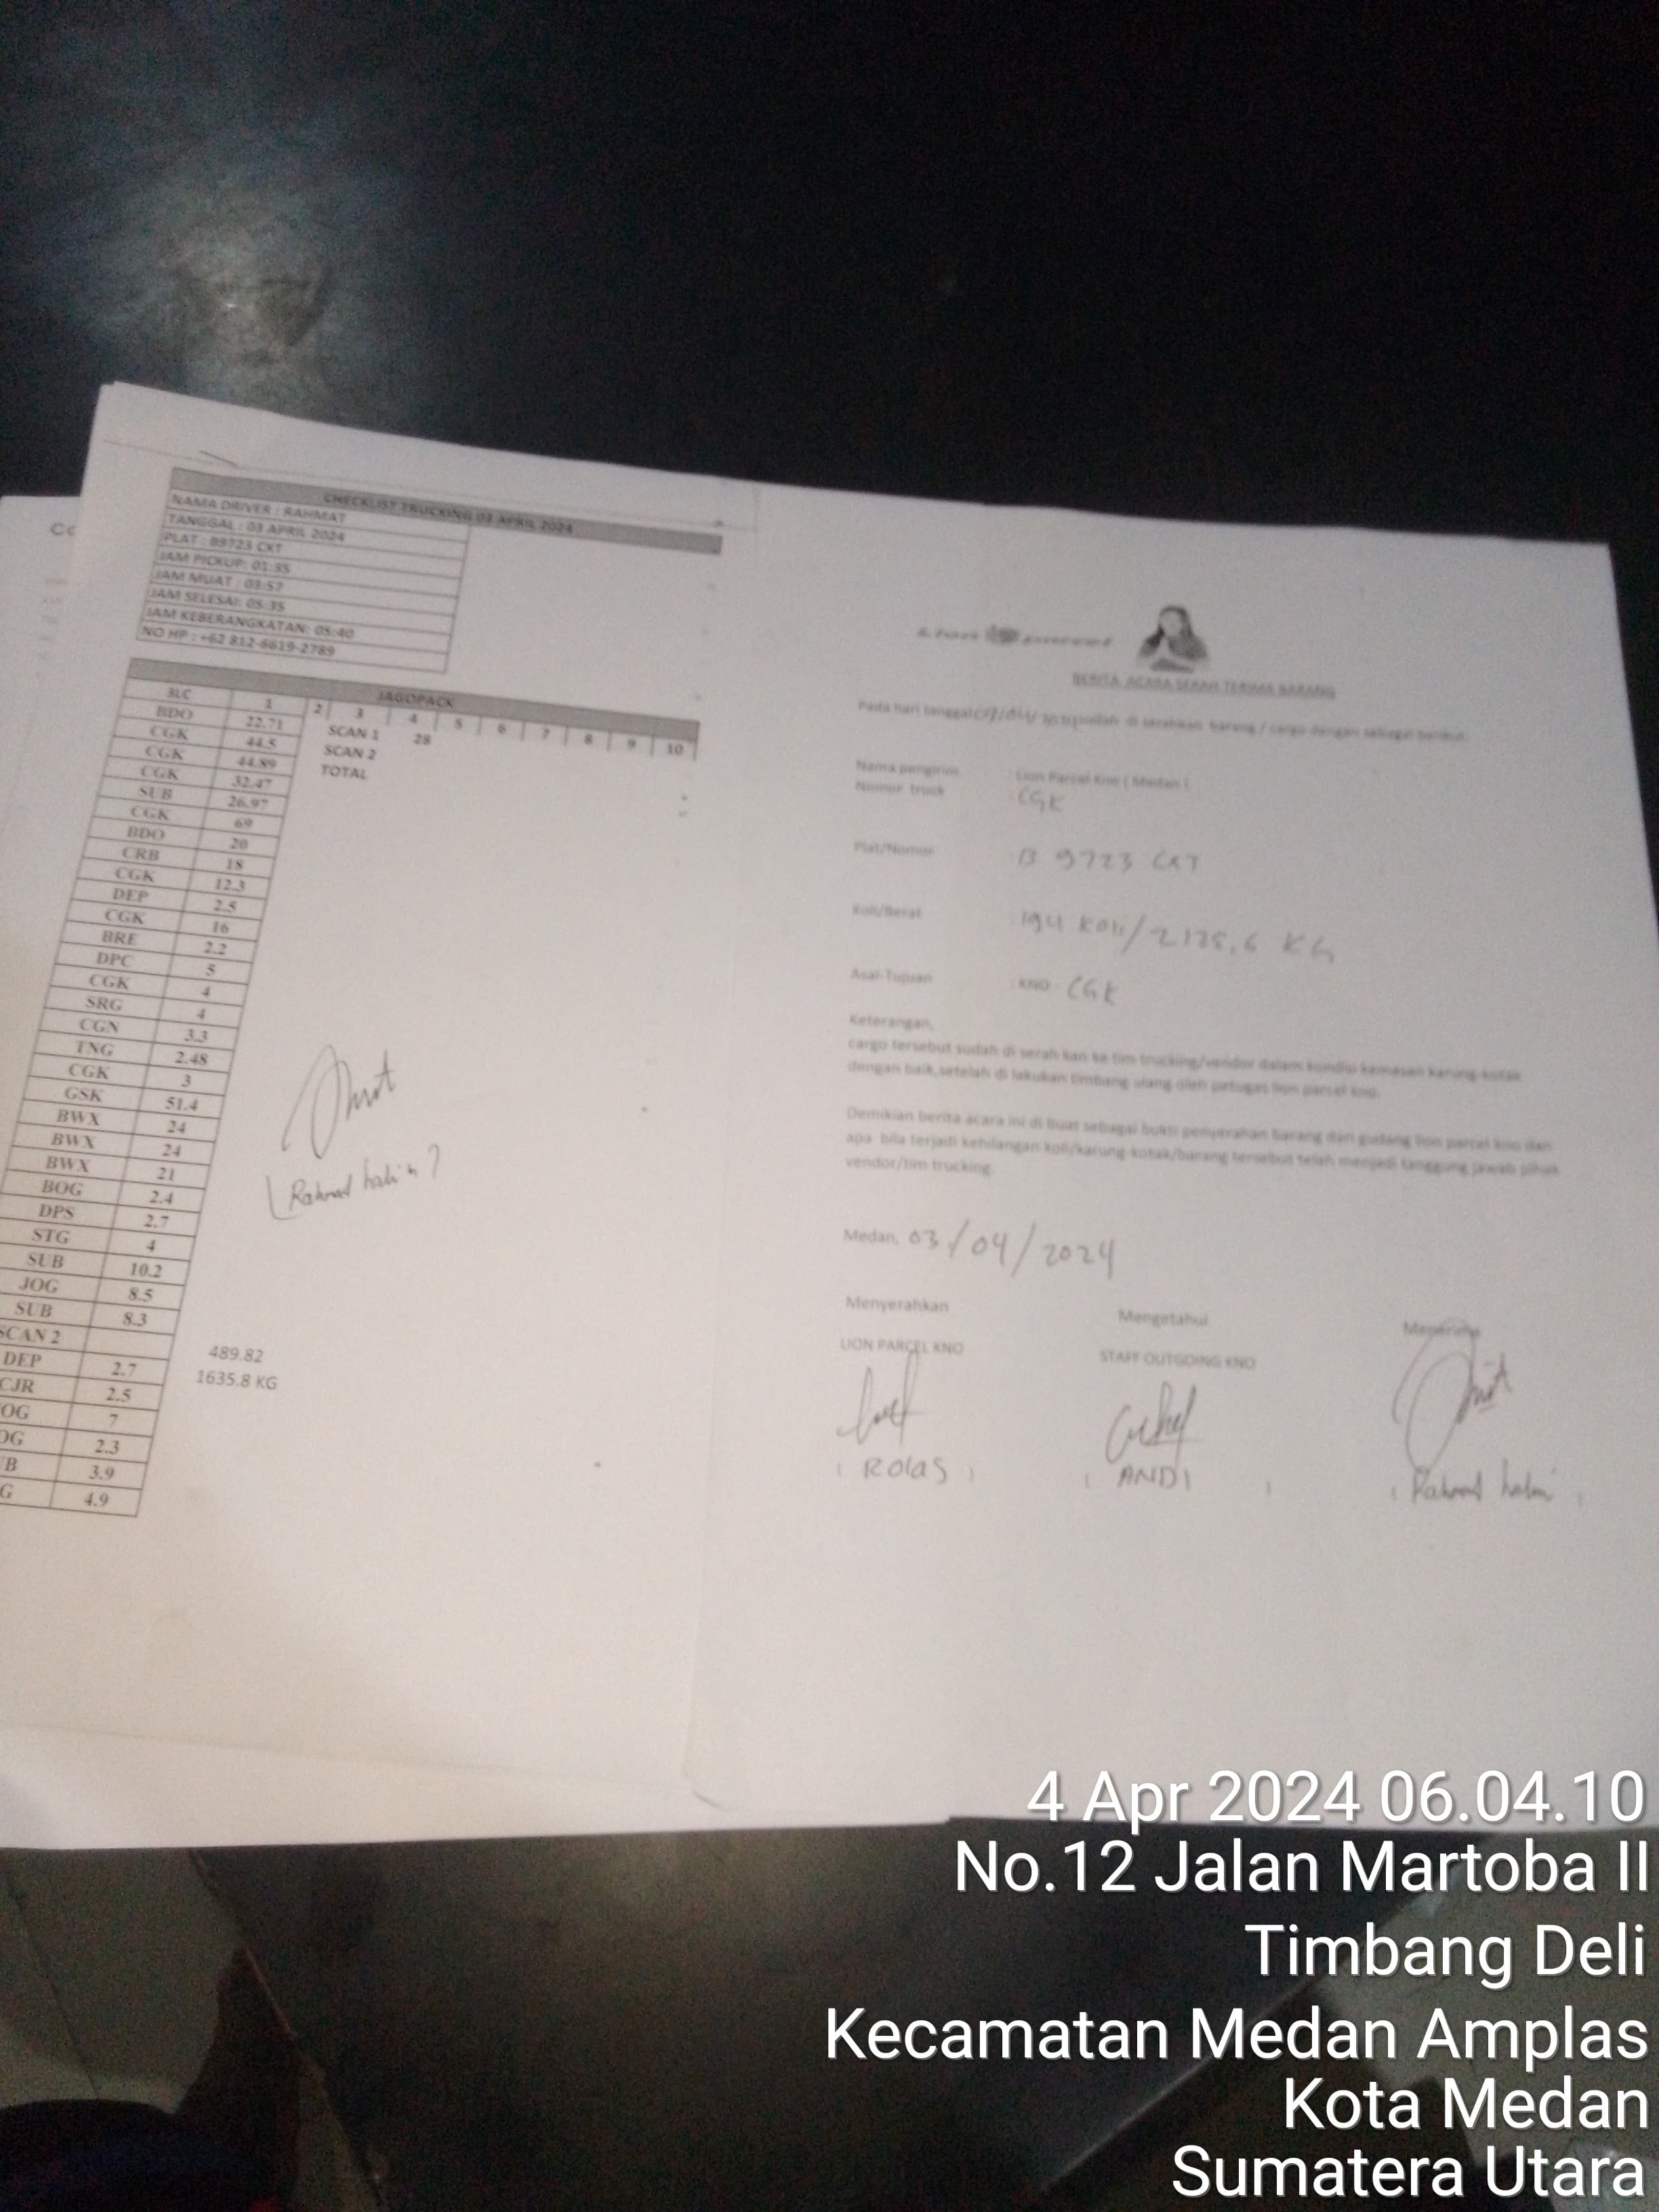 CHECKLIST TRUCKING 03 APRIL 2024
NAMA DRIVER : RAHMAT
TANGGAL : 03 APRIL 2024
PLAT : B9723 CKT
JAM PICKUP: 01:35
JAM MUAT : 03:57
JAM SELESAI: 05:35
JAM KEBERANGKATAN: 05:40
NO HP : +62 812-6619-2789
JAGOPACK
3LC 1 2 3 4 5 6 7 8 9 10
BDO 22.71 SCAN 1 28
CGK 44.5 SCAN 2
CGK 44.89 TOTAL
CGK 32.47
SUB 26.97
CGK 69
BDO 20
CRB 18
CGK 12.3
DEP 2.5
CGK 16
BRE 2.2
DPC 5
CGK 4
SRG 4
CGN 3.3
TNG 2.48
CGK 3
GSK 51.4
BWX 24
BWX 24
BWX 21
BOG 2.4
DPS 2.7
STG 4
SUB 10.2
JOG 8.5
SUB 8.3
SCAN 2
DEP 2.7
CJR 2.5
OG 7
OG 2.3
B 3.9
G 4.9
489.82
1635.8 KG
Rahmat halim
Lion parcel
BERITA ACARA SERAH TERIMA BARANG
Pada hari tanggal sudah di serahkan barang / cargo dengan sebagai berikut
Nama pengirim : Lion Parcel Kno ( Medan )
Nomor truck : CGK
Plat/Nomor : B 9723 CKT
Koli/Berat : 194 Koli/2125,6 KG
Asal-Tujuan : KNO - CGK
Keterangan,
cargo tersebut sudah di serah kan ke tim trucking/vendor dalam kondisi kemasan karung-kotak
dengan baik,setelah di lakukan timbang ulang oleh petugas lion parcel kno.
Demikian berita acara ini di buat sebagai bukti penyerahan barang dari gudang lion parcel kno dan
apa bila terjadi kehilangan koli/karung-kotak/barang tersebut telah menjadi tanggung jawab pihak
vendor/tim trucking
Medan, 03/04/2024
Menyerahkan Mengetahui Menerima
LION PARCEL KNO STAFF OUTGOING KNO
( ROlaS ) ( ANDI ) ( Rahmat halim )
4 Apr 2024 06.04.10
No.12 Jalan Martoba II
Timbang Deli
Kecamatan Medan Amplas
Kota Medan
Sumatera Utara